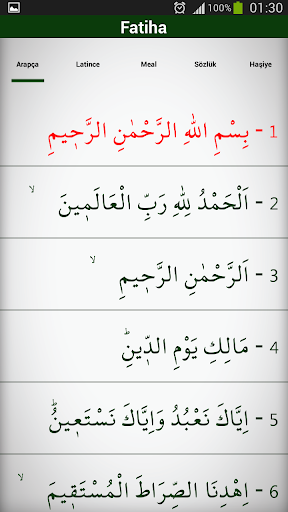 100% 01:30
Fatiha
Arapça Latince Meal Sözlük Haşiye
1 - بِسْمِ اللهِ الرَّحْمٰنِ الرَّح۪يمِ
2 - اَلْحَمْدُ لِلّٰهِ رَبِّ الْعَالَم۪ينَ ۙ
3 - اَلرَّحْمٰنِ الرَّح۪يمِ ۙ
4 - مَالِكِ يَوْمِ الدّ۪ينِ ۜ
5 - اِيَّاكَ نَعْبُدُ وَاِيَّاكَ نَسْتَع۪ينُ ۜ
6 - اِهْدِنَا الصِّرَاطَ الْمُسْتَق۪يمَ ۙ